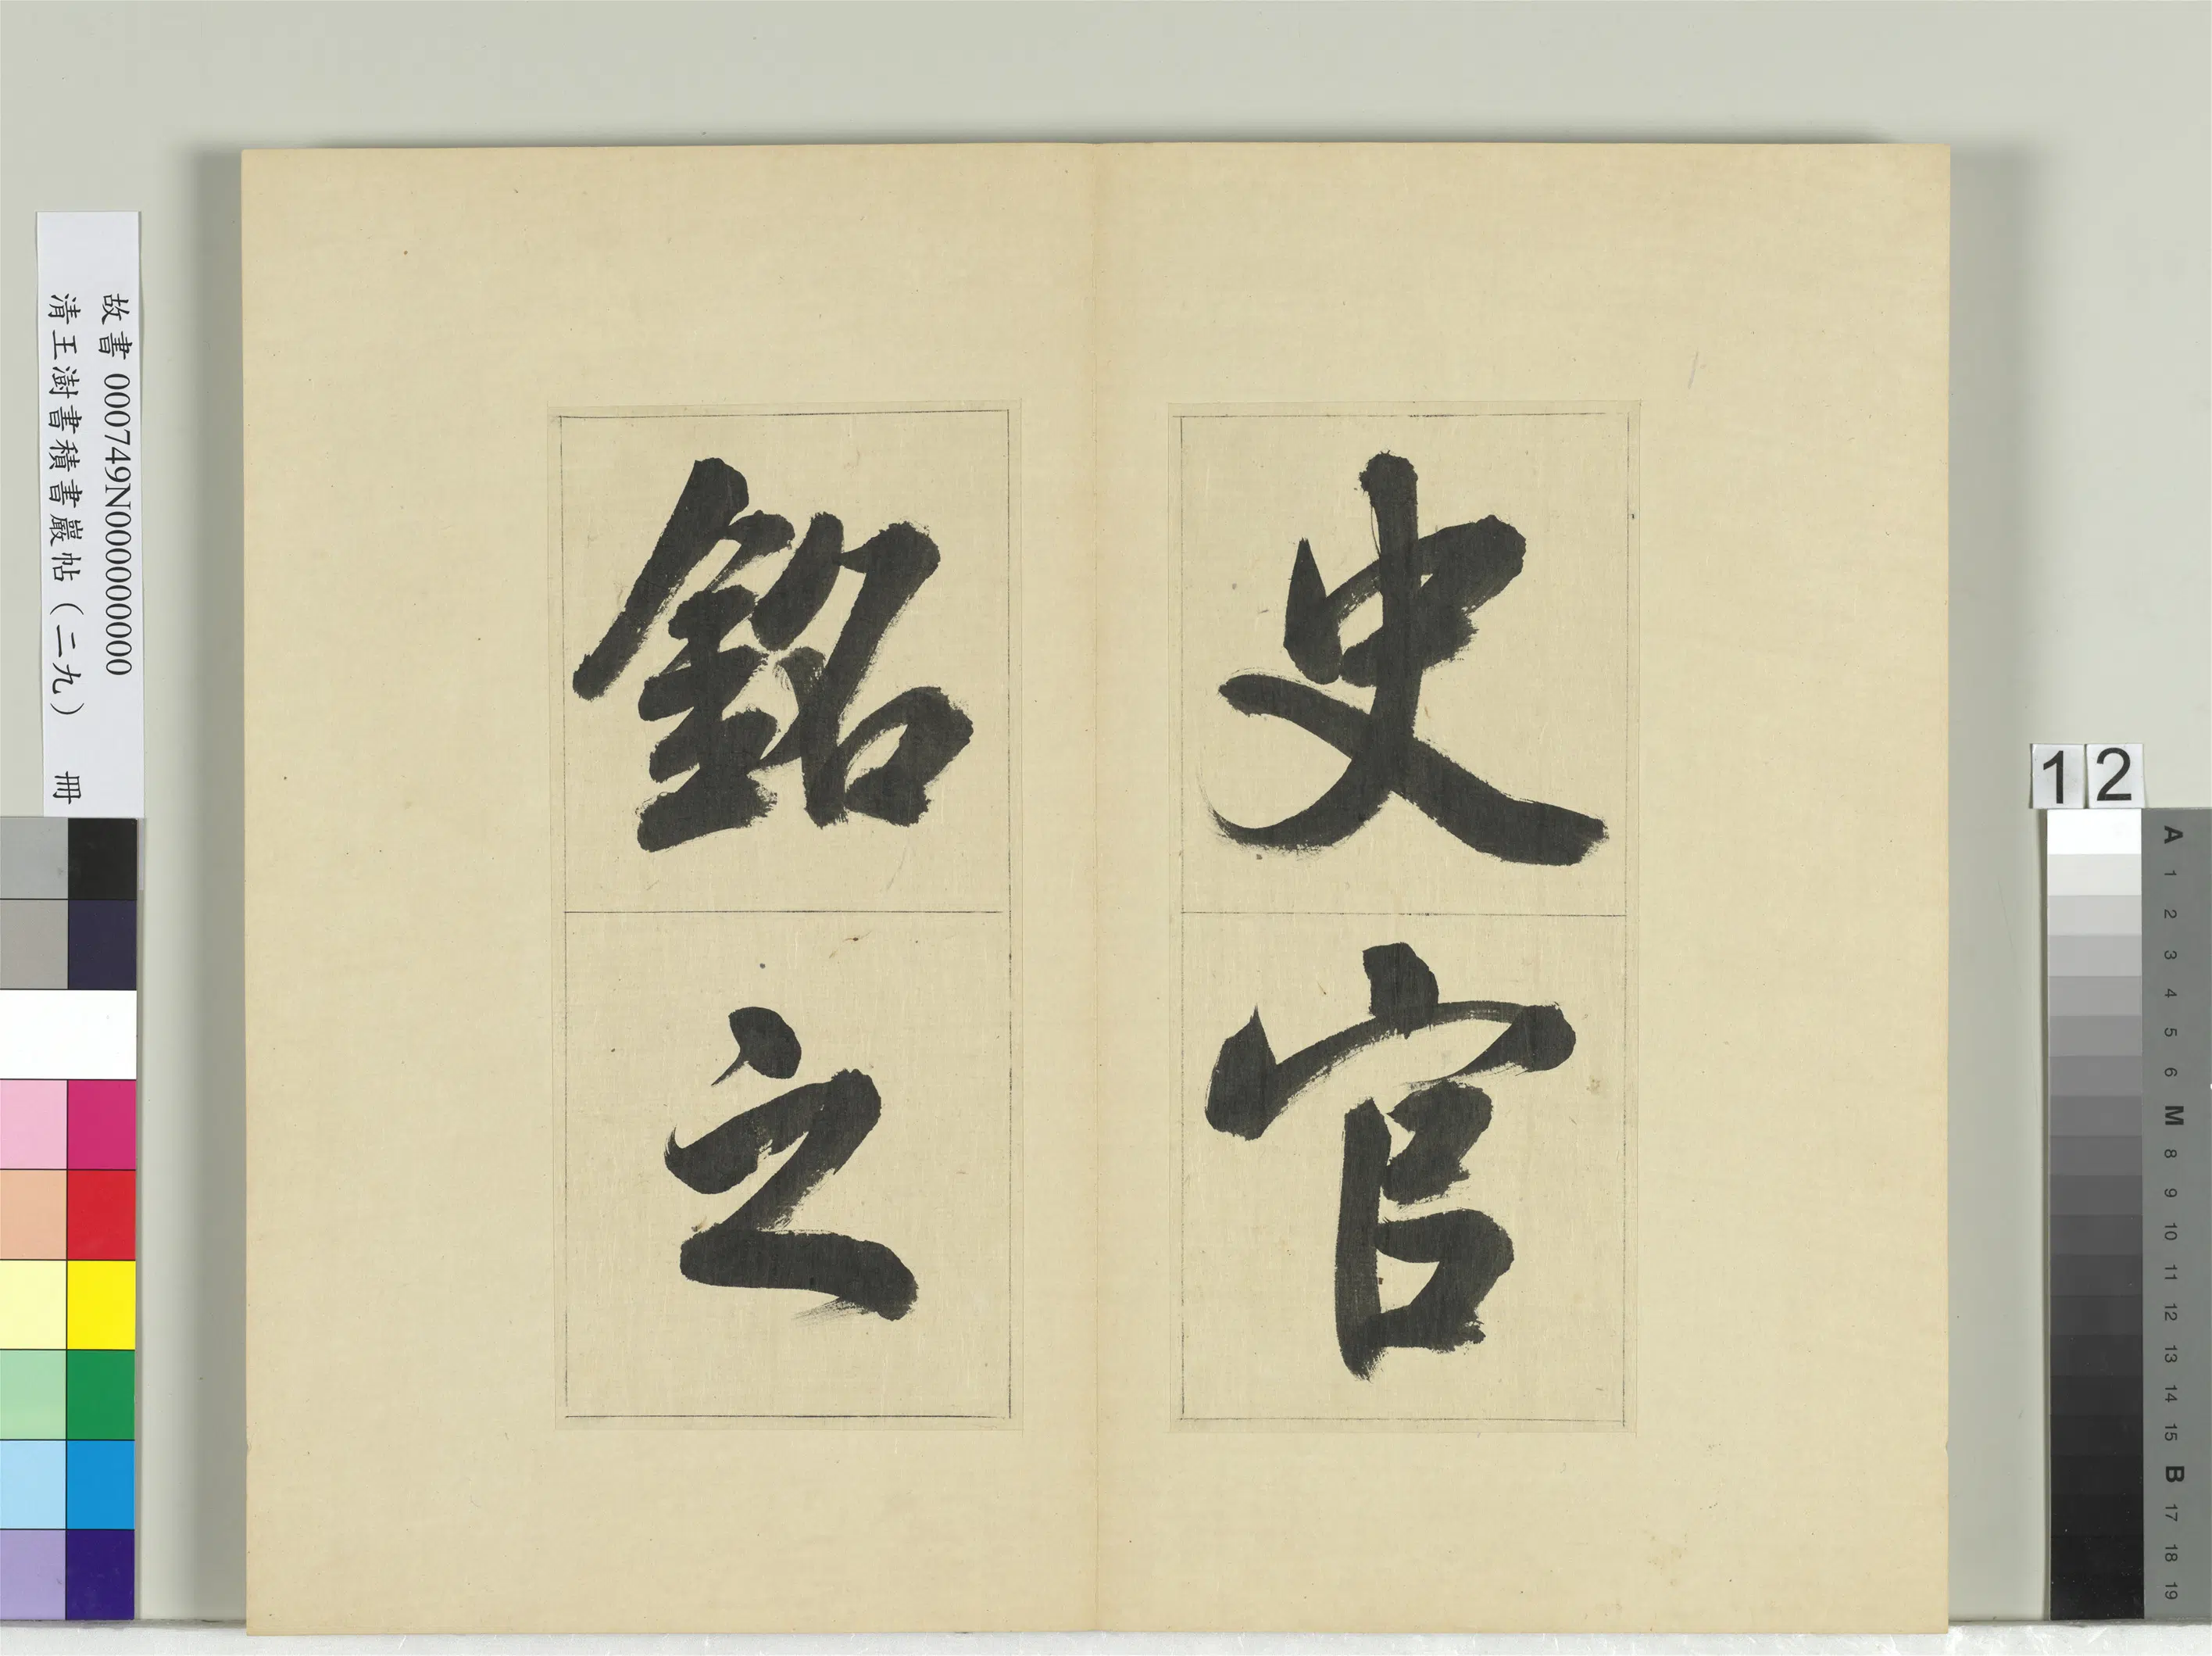 史官
銘之
故書 000749N000000000
清王澍書積書巖帖（二九） 冊
12
A
1
2
3
4
5
6
M
8
9
10
11
12
13
14
15
B
17
18
19